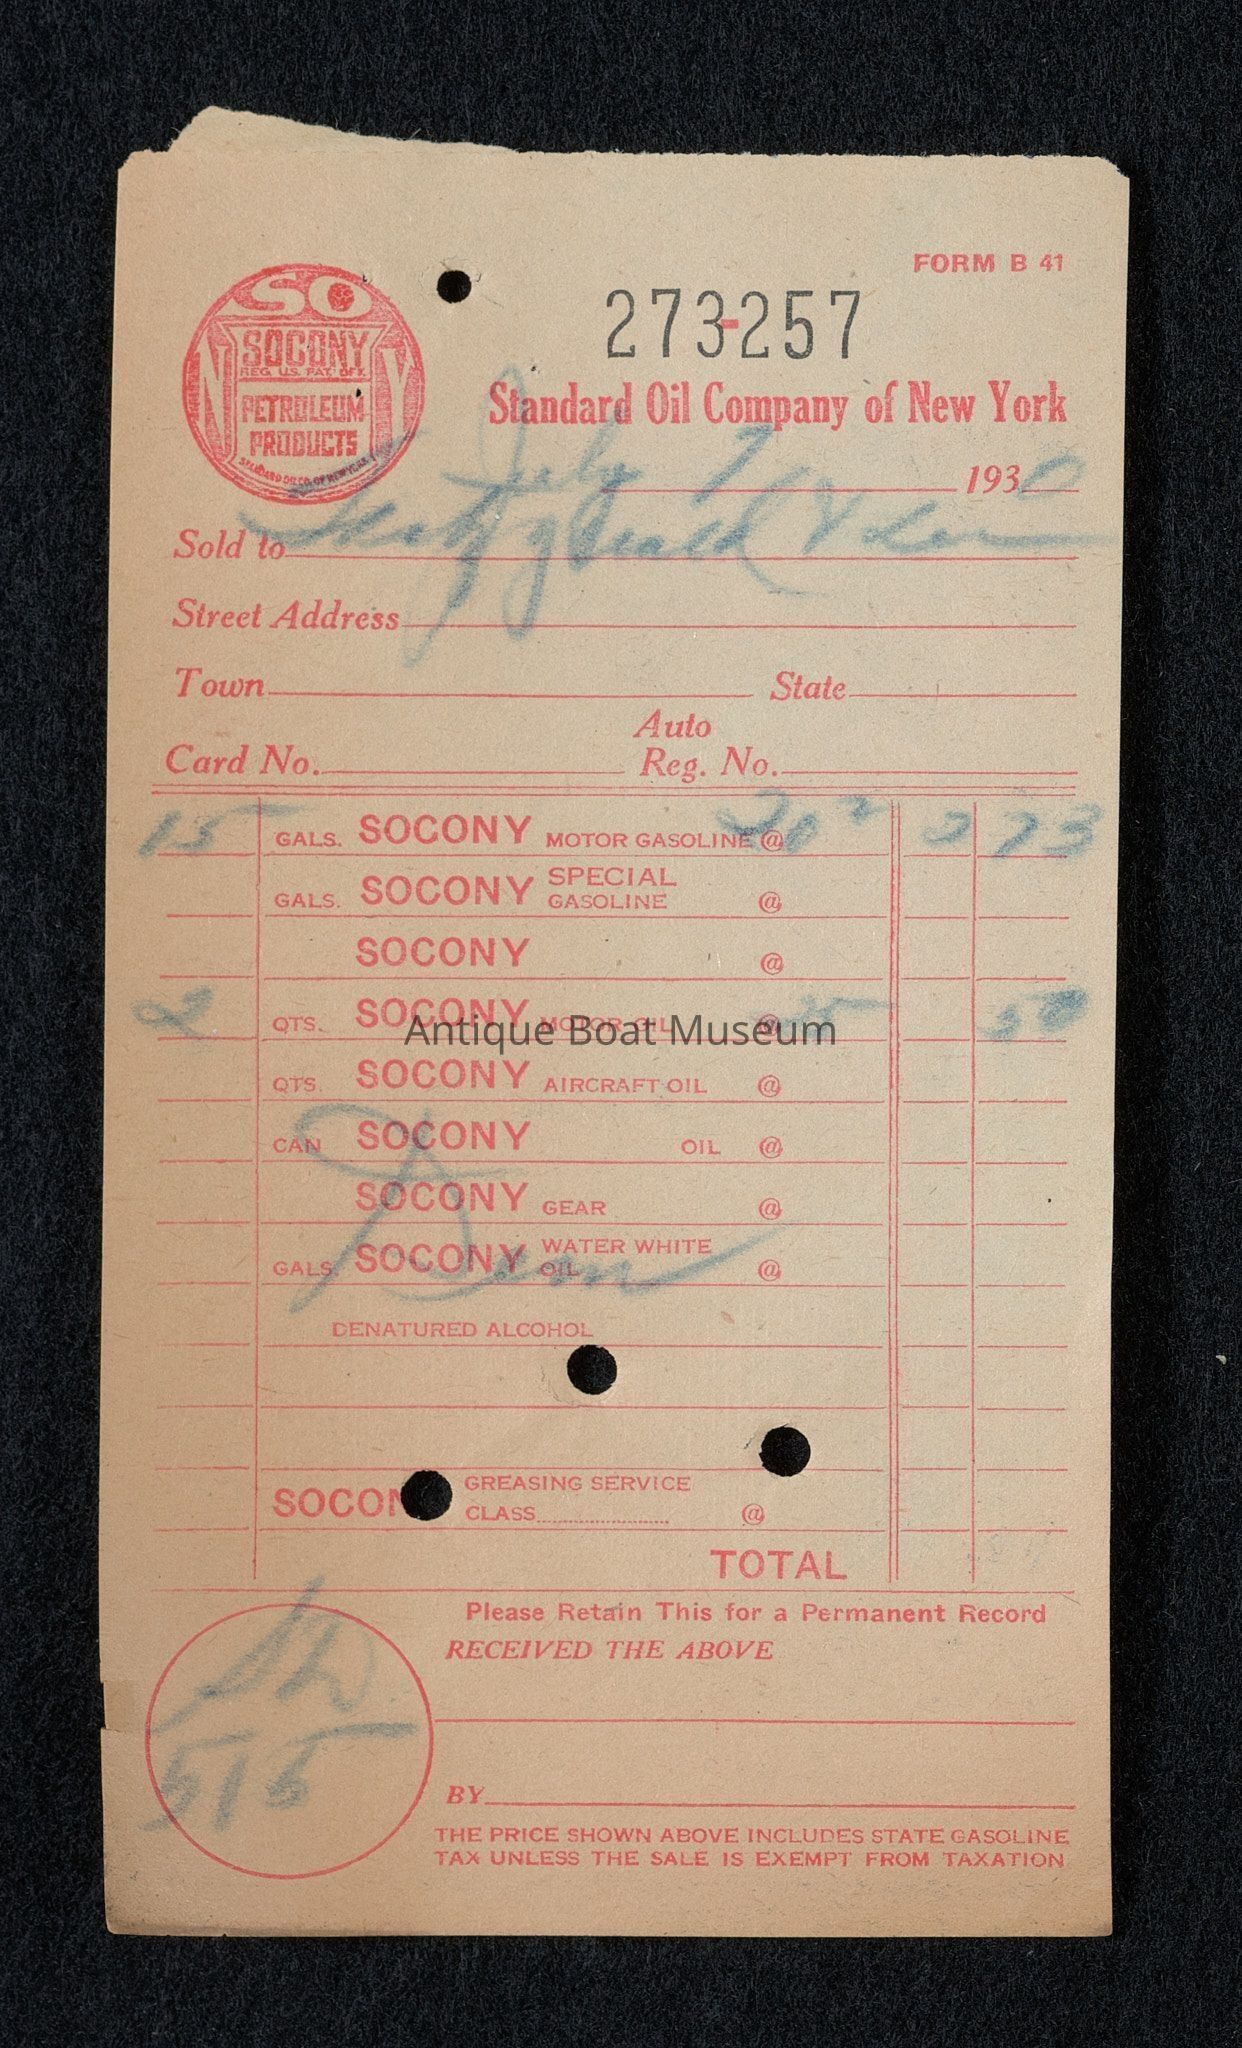 FORM B 41
273-257
SO
NY
SOCONY
REG. U.S. PAT. OFF.
PETROLEUM
PRODUCTS
STANDARD OIL CO. OF NEW YORK
Standard Oil Company of New York
July 7 1930
Sold to
Street Address
Town State
Auto
Card No. Reg. No.
15 GALS. SOCONY MOTOR GASOLINE @ 2 73
GALS. SOCONY SPECIAL GASOLINE @
SOCONY @
2 QTS. SOCONY MOTOR OIL @ 25 50
Antique Boat Museum
QTS. SOCONY AIRCRAFT OIL @
CAN SOCONY OIL @
SOCONY GEAR @
GALS SOCONY WATER WHITE OIL @
DENATURED ALCOHOL
SOCON GREASING SERVICE
CLASS @
TOTAL
Please Retain This for a Permanent Record
RECEIVED THE ABOVE
515
BY
THE PRICE SHOWN ABOVE INCLUDES STATE GASOLINE
TAX UNLESS THE SALE IS EXEMPT FROM TAXATION